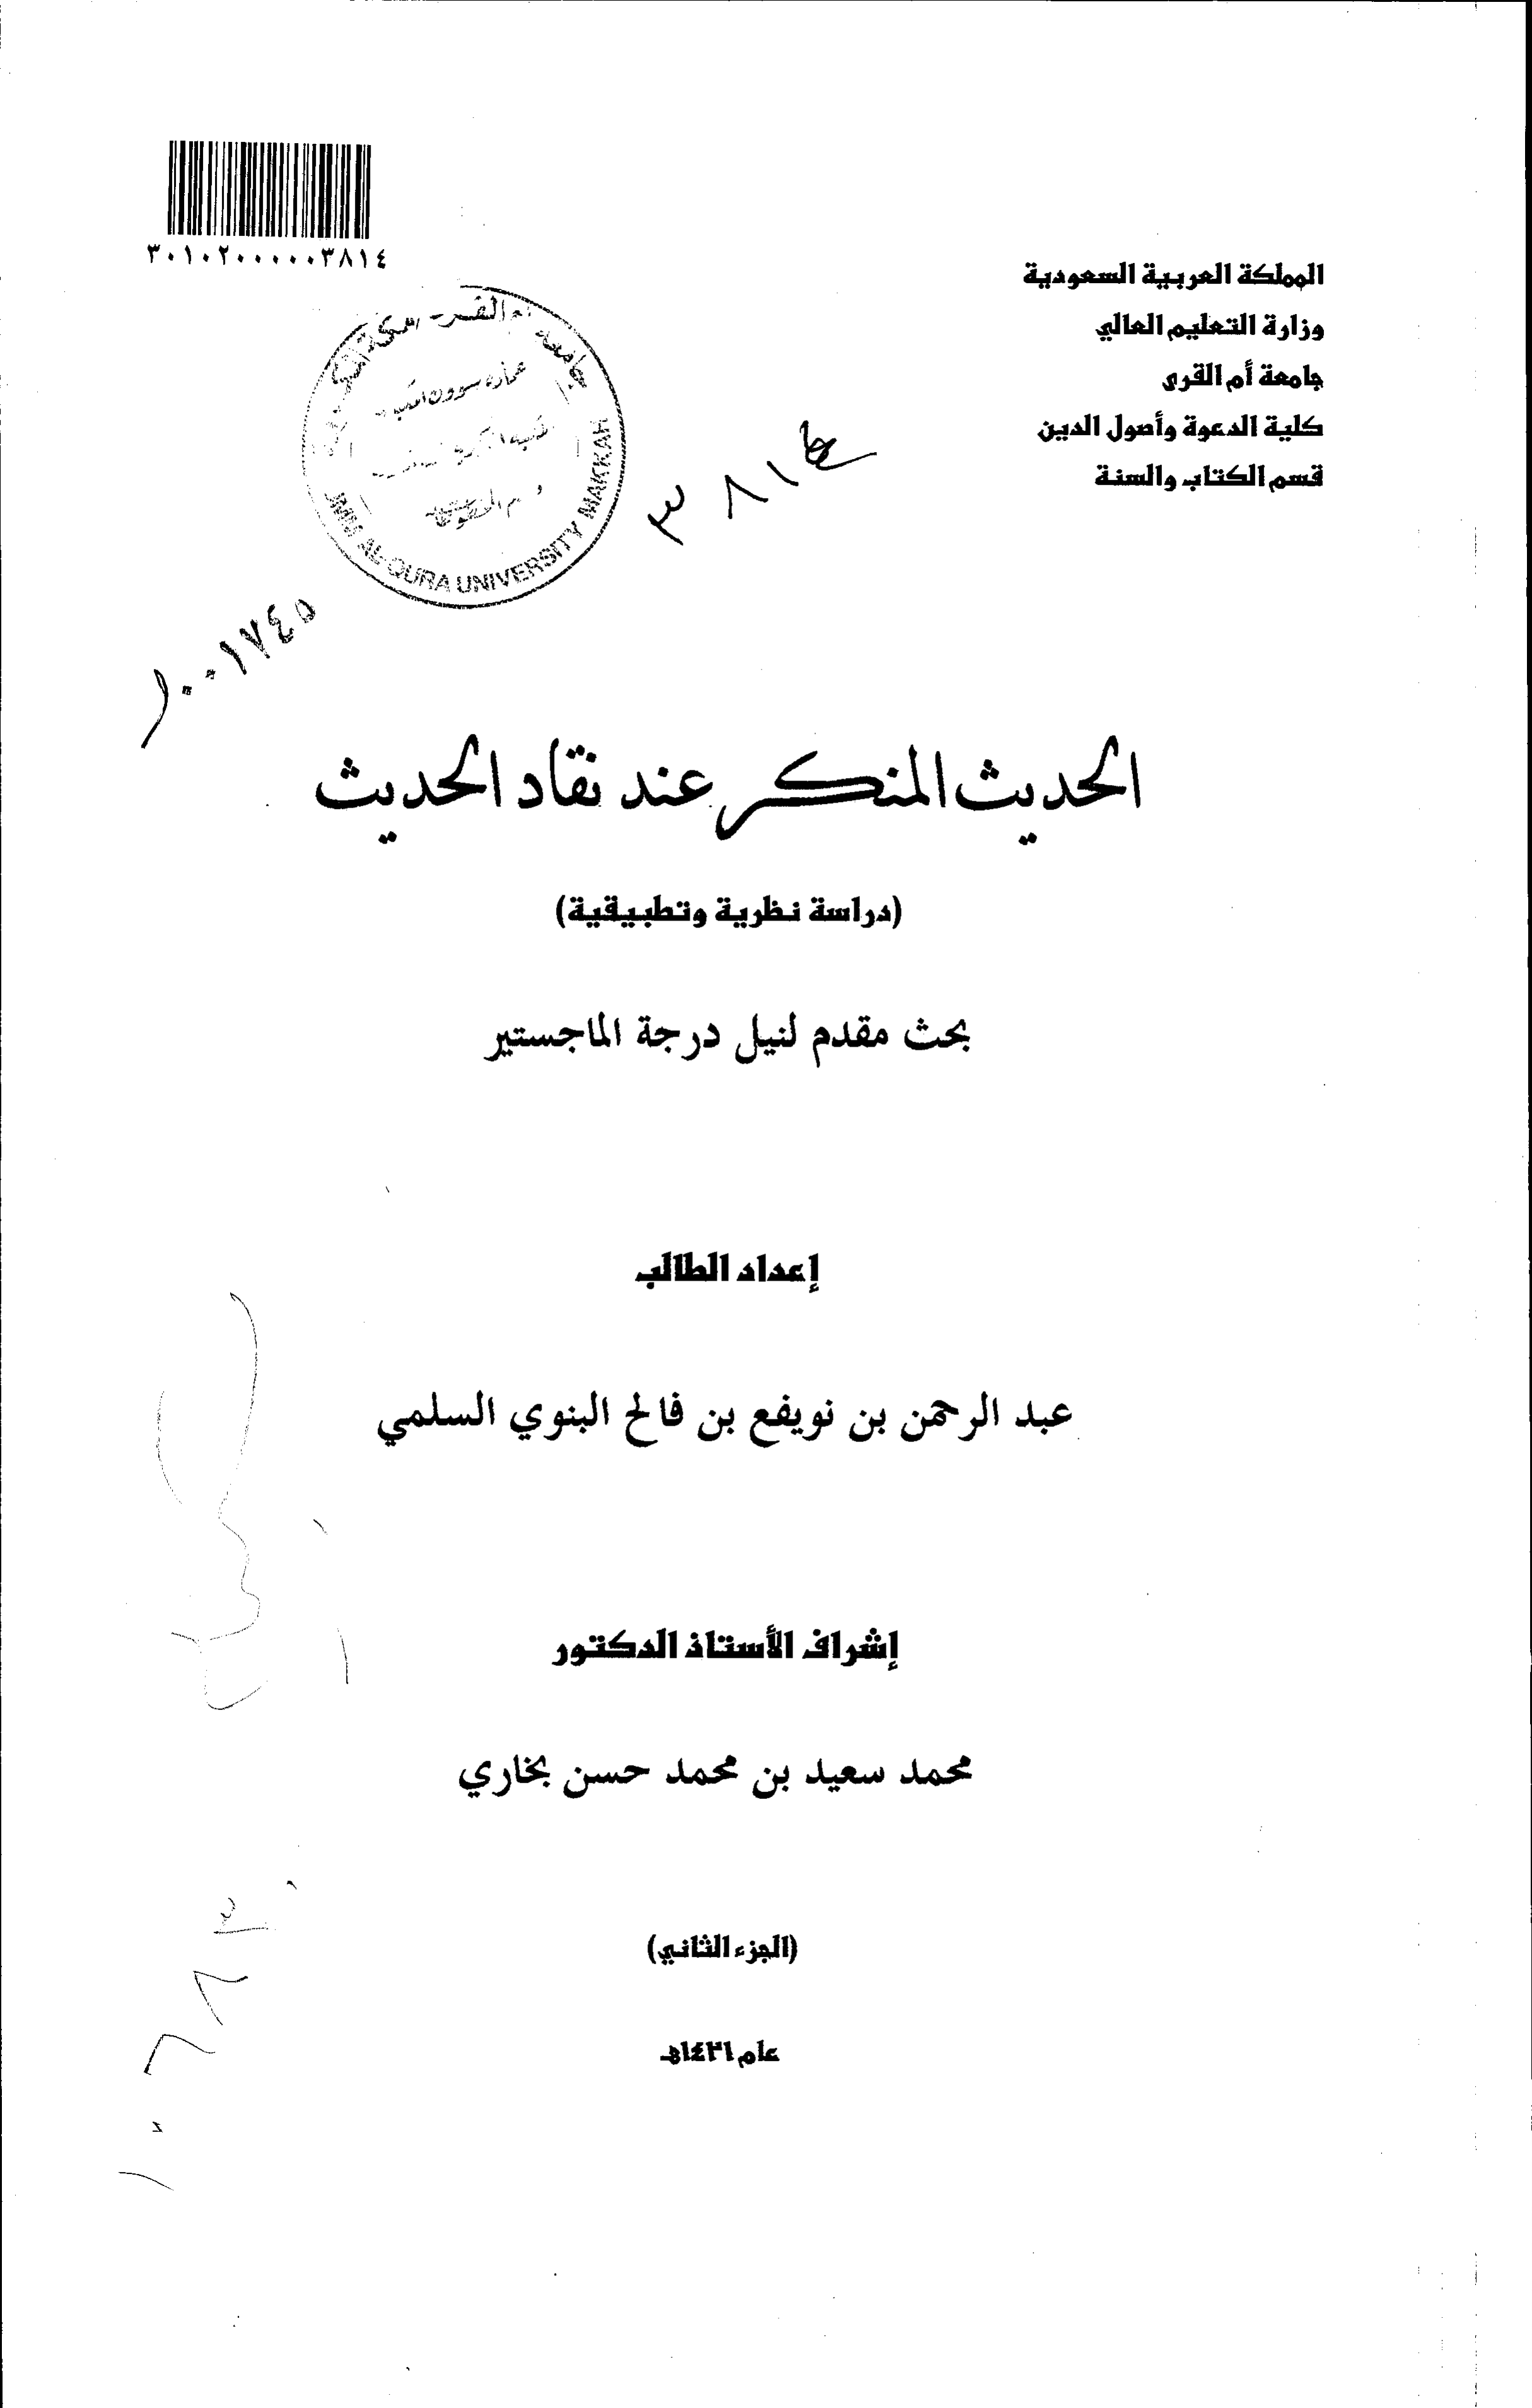 ٣٠١٠٢٠٠٠٠٠٣٨١٤
المملكة العربية السعودية
وزارة التعليم العالي
جامعة أم القرى
كلية الدعوة وأصول الدين
قسم الكتاب والسنة
UMM AL-QURA UNIVERSITY MAKKAH
٣٨١٤
١٠٠١٧٤٥
الحديث المنكر عند نقاد الحديث
(دراسة نظرية وتطبيقية)
بحث مقدم لنيل درجة الماجستير
إعداد الطالب
عبد الرحمن بن نويفع بن فالح البنوي السلمي
إشراف الأستاذ الدكتور
محمد سعيد بن محمد حسن بخاري
(الجزء الثاني)
عام ١٤٢١هـ